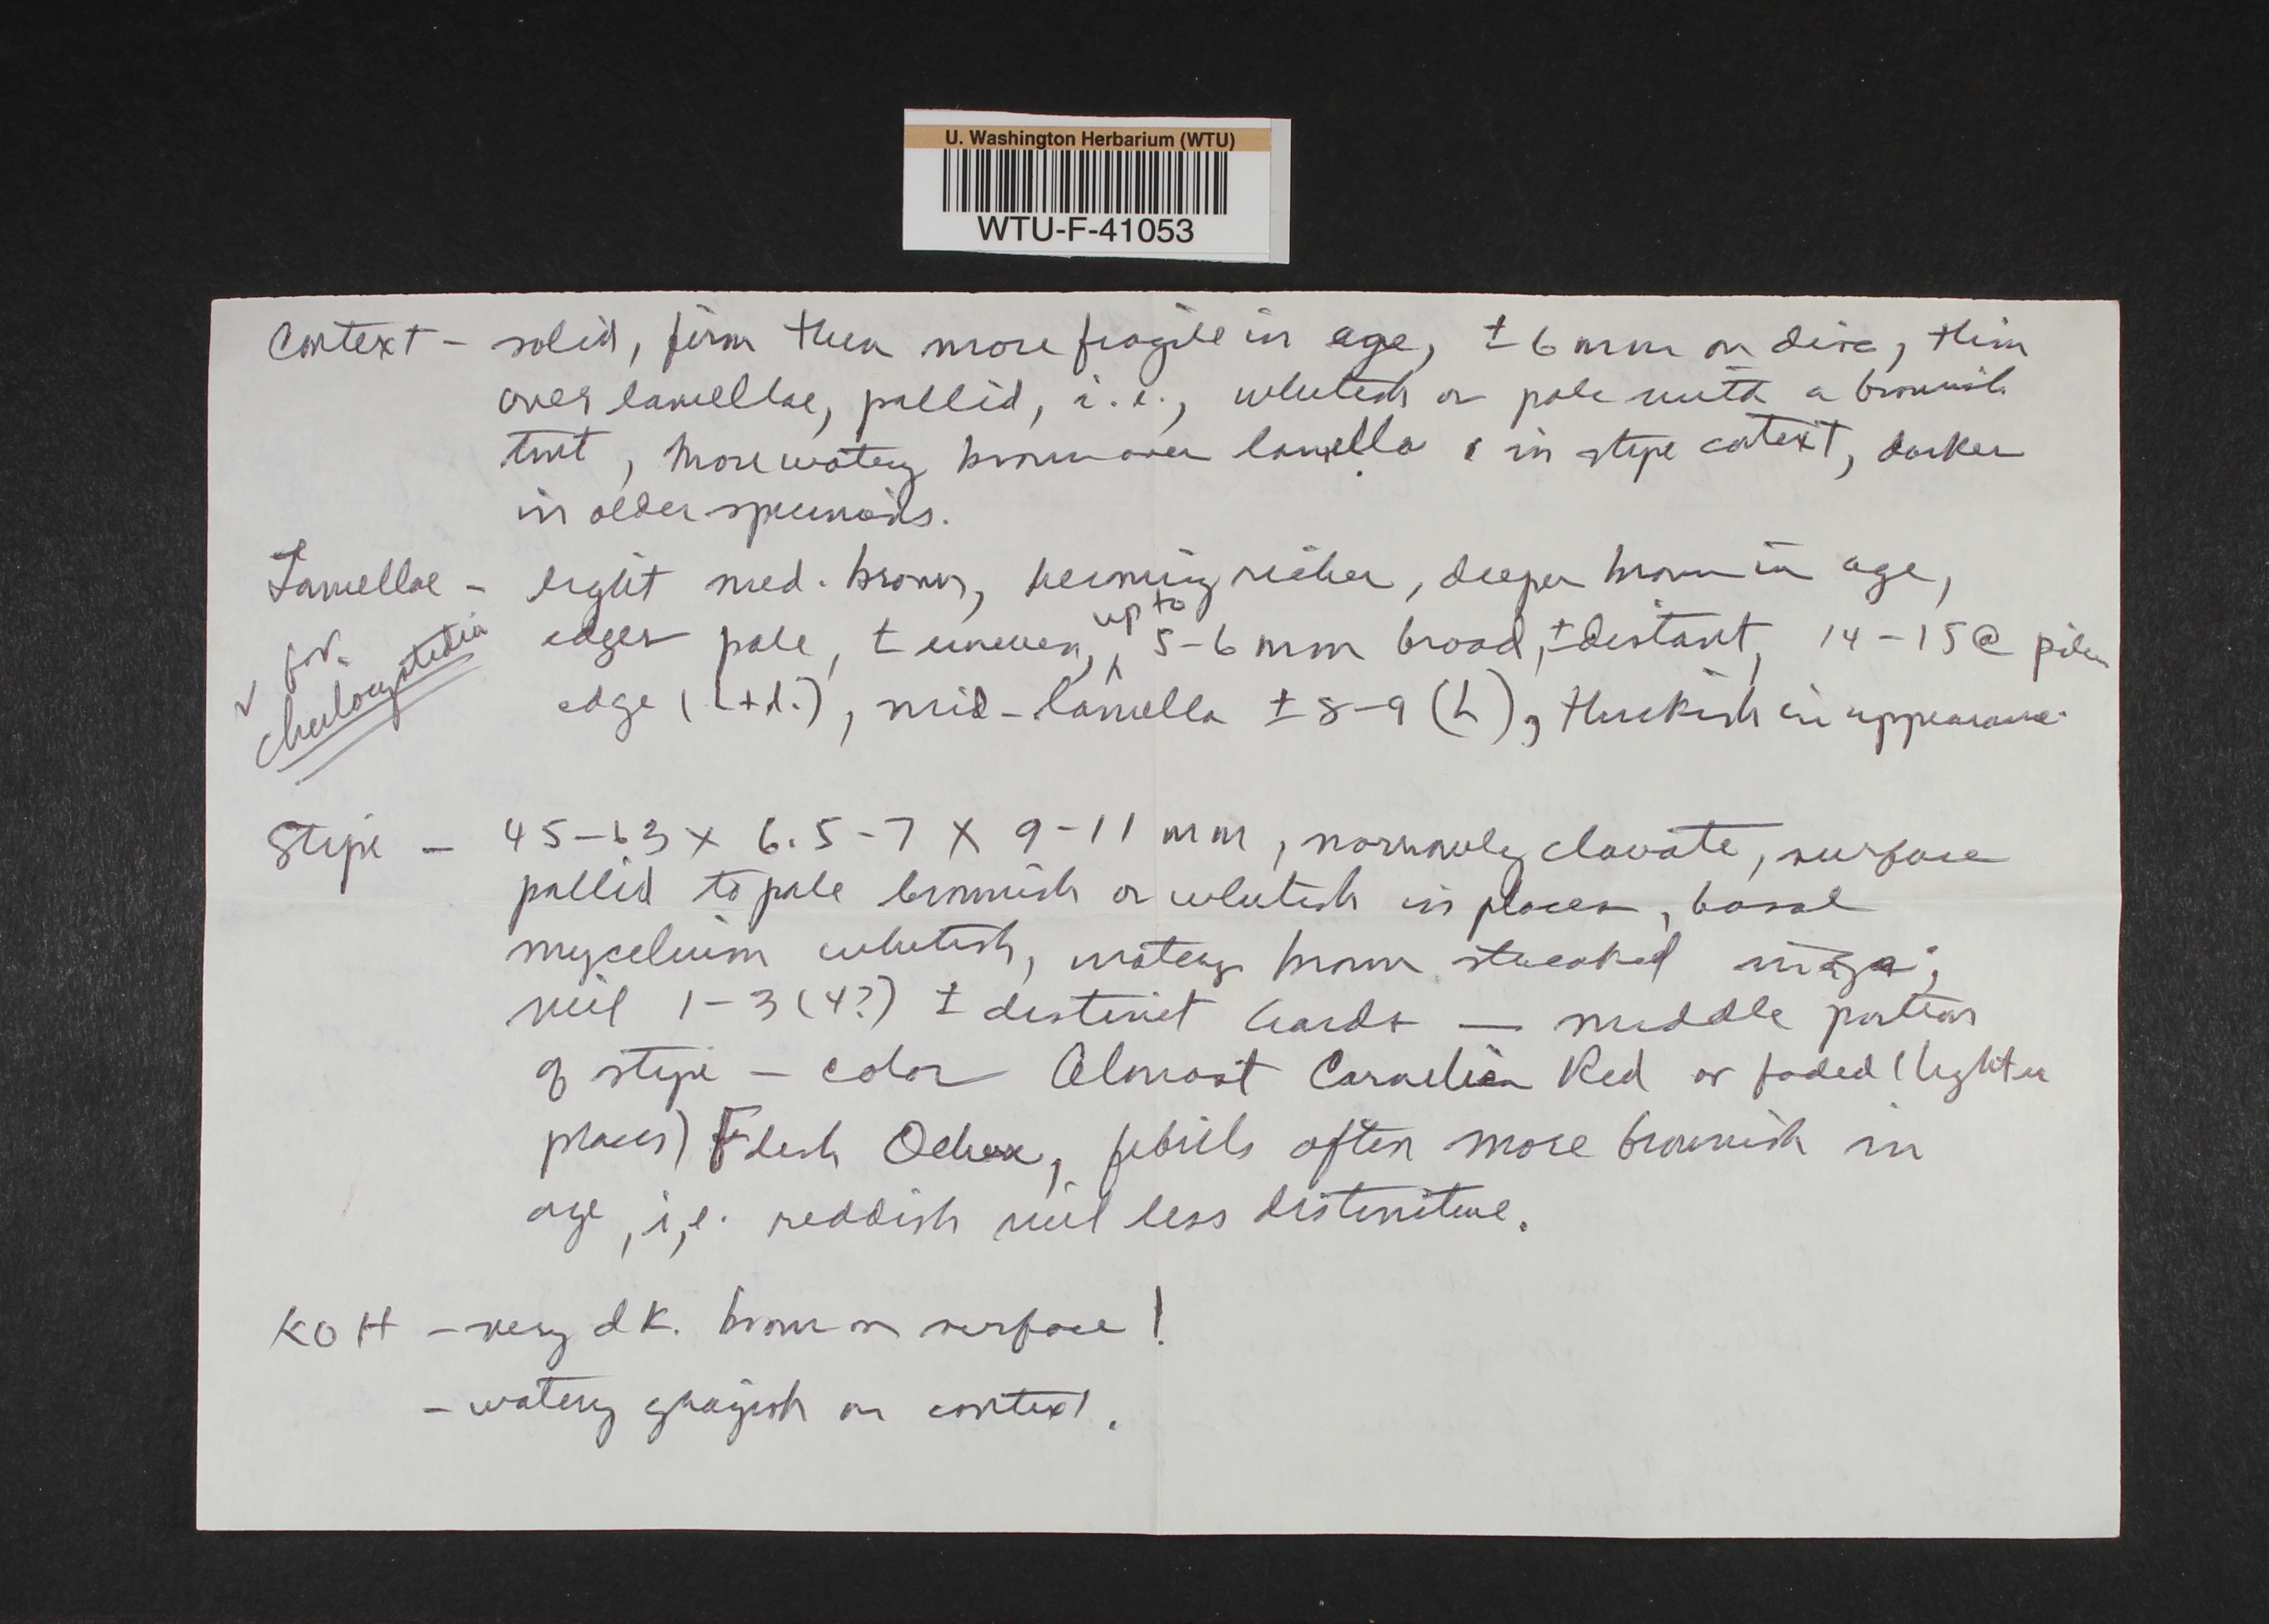 U. Washington Herbarium (WTU)
WTU-F-41053
Context - solid, firm then more fragile in age, ± 6 mm on disc, thin
over lamellae, pallid, i.e., whitish or pale with a brownish
tint, more watery brown over lamella & in stipe context, darker
in older specimens.
Lamellae - light med. brown, becoming richer, deeper brown in age,
edges pale, ± uneven, up to 5-6 mm broad, ± distant, 14-15 @ pileus
edge (L+l.), mid-lamella ± 8-9 (L), thickish in appearance.
✓ for
cheilocystidia
Stipe - 45-63 X 6.5-7 X 9-11 mm, narrowly clavate, surface
pallid to pale brownish or whitish in places, basal
mycelium whitish, watery brown streaked in age;
veil 1-3 (4?) ± distinct bands — middle portion
of stipe - color Almost Carnelian Red or faded (lighter
places) Flesh Ocher, fibrils often more brownish in
age, i.e. reddish veil less distinctive.
KOH - very dk. brown on surface!
- watery grayish on context.